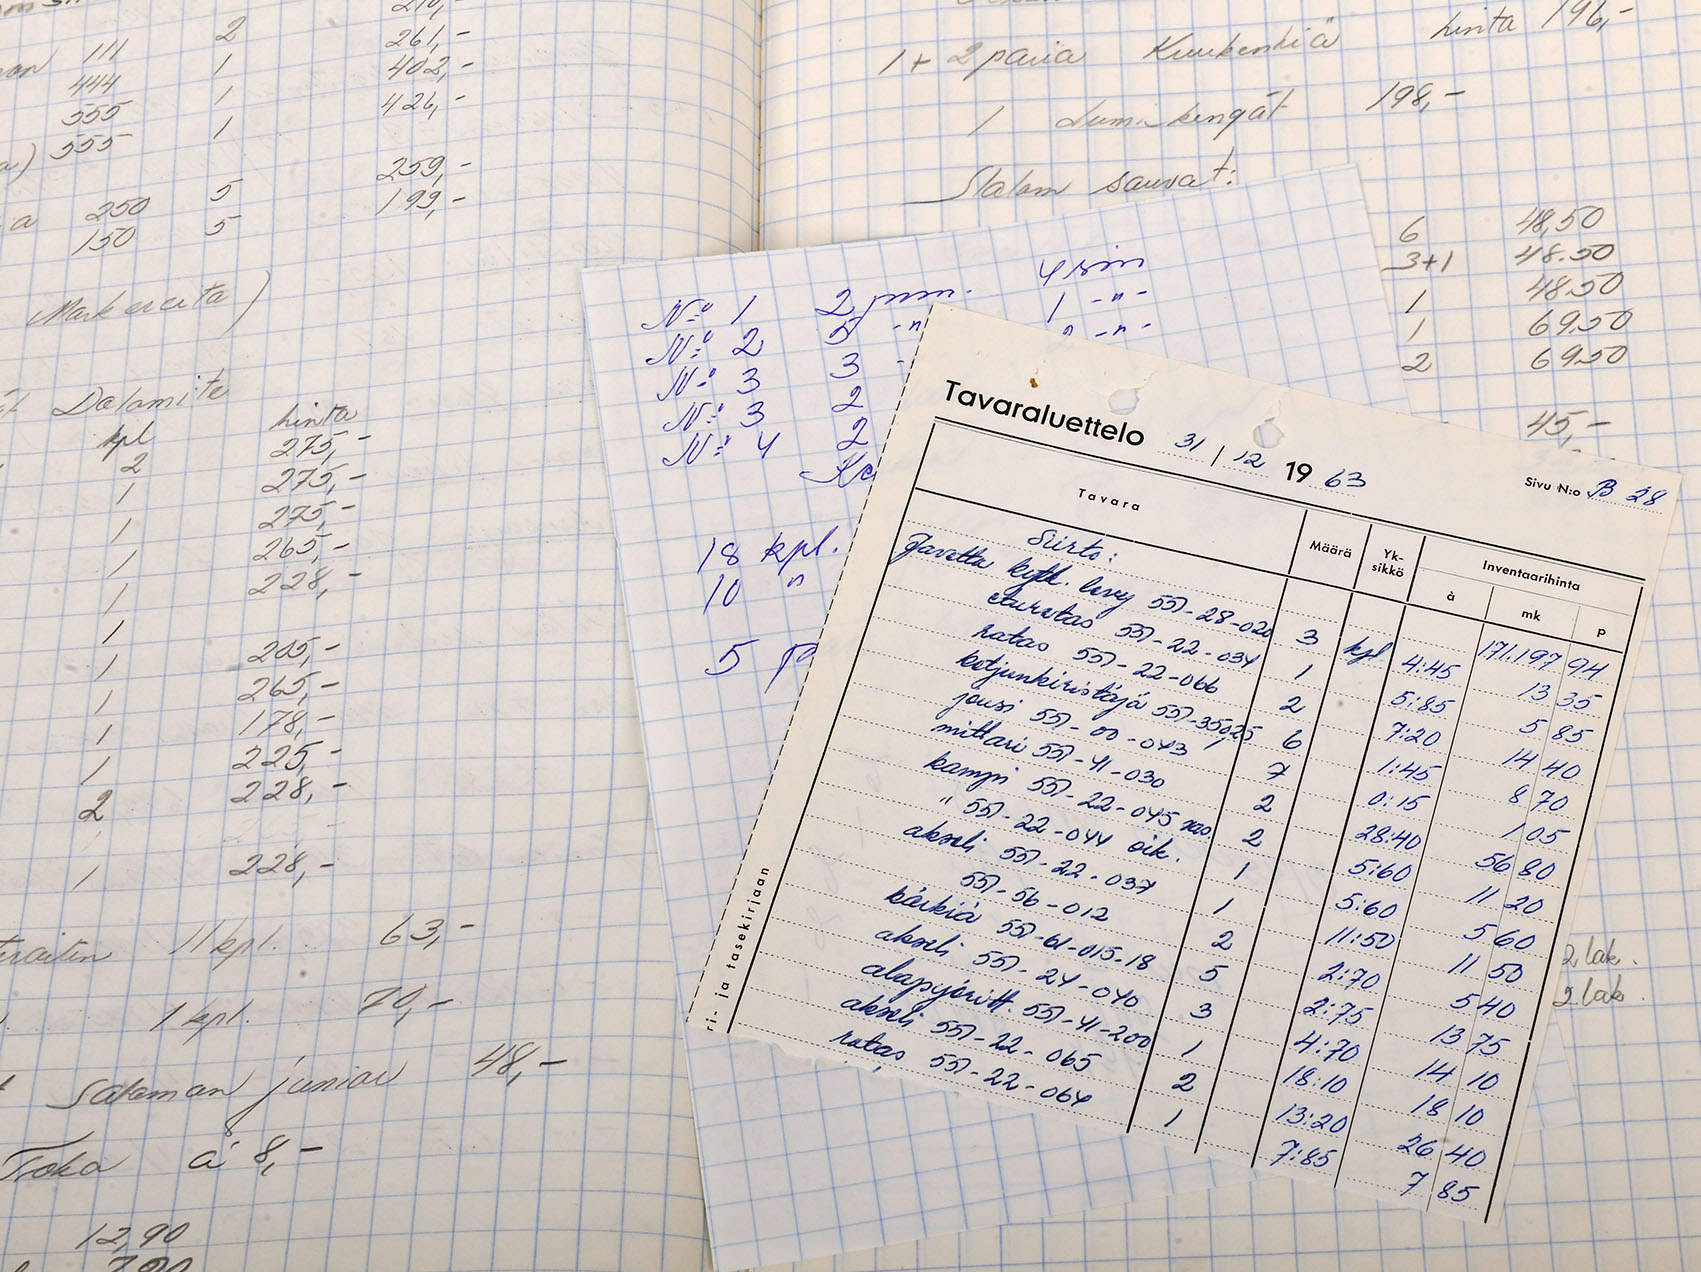 261,-
111 2 402,-
444 1 426,-
555 1
555 1
259,-
250 5 199,-
150 5
Markereita)
Dolomite
kpl hinta
2 275,-
1 275,-
1 275,-
1 265,-
1 228,-
1
1 205,-
1 265,-
1 178,-
1 225,-
2 228,-
1 228,-
11 kpl. 63,-
1 kpl. 70,-
Salaman junior 48,-
Troka á 8,-
12,90
7,90
hinta 196,-
1 + 2 paria Kuukenkiä
1 Lumikengät 198,-
Slalom sauvat:
6 48,50
3+1 48.50
1 48.50
1 69.50
2 69.50
45,-
2 lak.
2 lak.
4 sin
N:o 1 2 pun. 1 -"-
N:o 2 5 -"- -"-
N:o 3 3
N:o 3 2
N:o 4 2
18 kpl.
10 "
5
Tavaraluettelo 31 / 12 1963
Sivu N:o B 28
Tavara Määrä Yk-sikkö Inventaarihinta
à mk p
Siirto: 171.197 94
Javetta kytk. levy 557-28-020 3 kpl 4:45 13 35
eturatas 557-22-034 1 5:85 5 85
ratas 557-22-066 2 7:20 14 40
ketjunkiristäjä 557-35025 6 1:45 8 70
jousi 557-00-043 7 0:15 1 05
mittari 557-41-030 2 28:40 56 80
kampi 557-22-045 vas. 2 5:60 11 20
" 557-22-044 oik. 1 5:60 5 60
akseli 557-22-037 1 11:50 11 50
557-56-012 2 2:70 5 40
kärkiä 557-61-015-18 5 2:75 13 75
akseli 557-24-040 3 4:70 14 10
alapyöritt. 557-41-200 1 18:10 18 10
akseli 557-22-065 2 13:20 26 40
ratas 557-22-064 1 7:85 7 85
ri- ja tasekirjaan